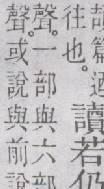 篇迺
往也。
讀若仍
聲。一部與六部
聲。或說與前說